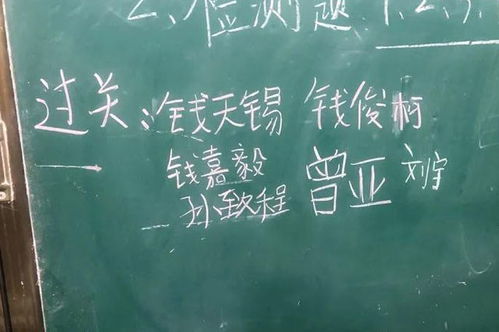 2、检测题 1、2、3、
过关：钱天锡 钱俊柯
钱嘉毅
孙致程 曾亚 刘宇